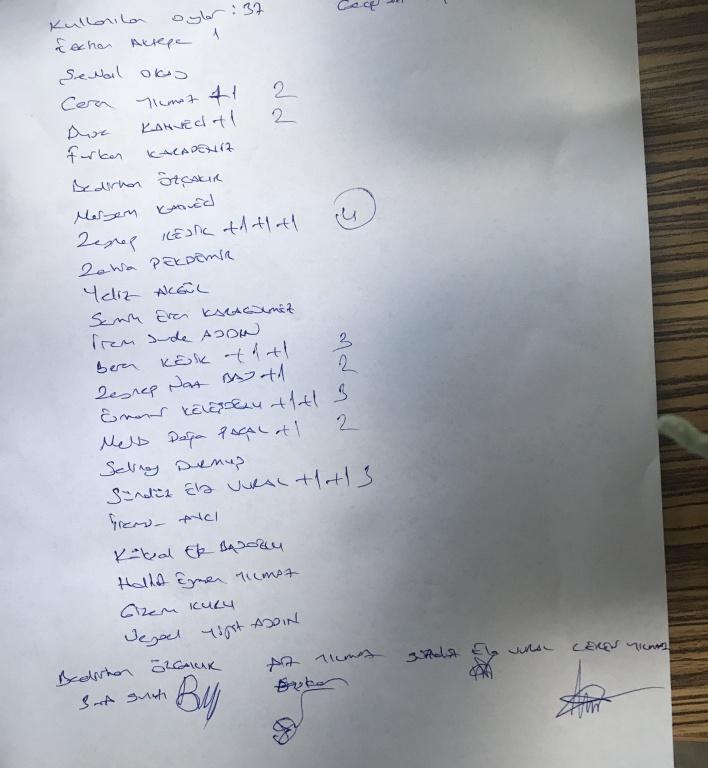 Kullanılan oylar : 37
Serhan Aktepe 1
Şenval OKUD
Ceren YILMAZ +1 2
Duru KAHVECİ +1 2
Furkan KARADENİZ
Bedirhan ÖZÇAKIR
Meryem KAHVECİ
Zeynep KESİK +1+1+1 4
Zehra PEKDEMİR
Yeliz AKGÜL
Semih Eren KARAGÜLMEZ
İrem Sude AYDIN
Beren KESİK +1+1 3
Zeynep Naz BAŞ +1 2
Emine KELEŞOĞLU +1+1 3
Melis Doğa PAÇAL +1 2
Selinay DURMUŞ
Gündüz Ela VURAL +1+1 3
AVCI
Kübal Efe
Halit Eymen YILMAZ
Gizem KURU
Veysel Yiğit AYDIN
Bedirhan ÖZÇAKIR YILMAZ Ela VURAL CEREN YILMAZ
Başkan